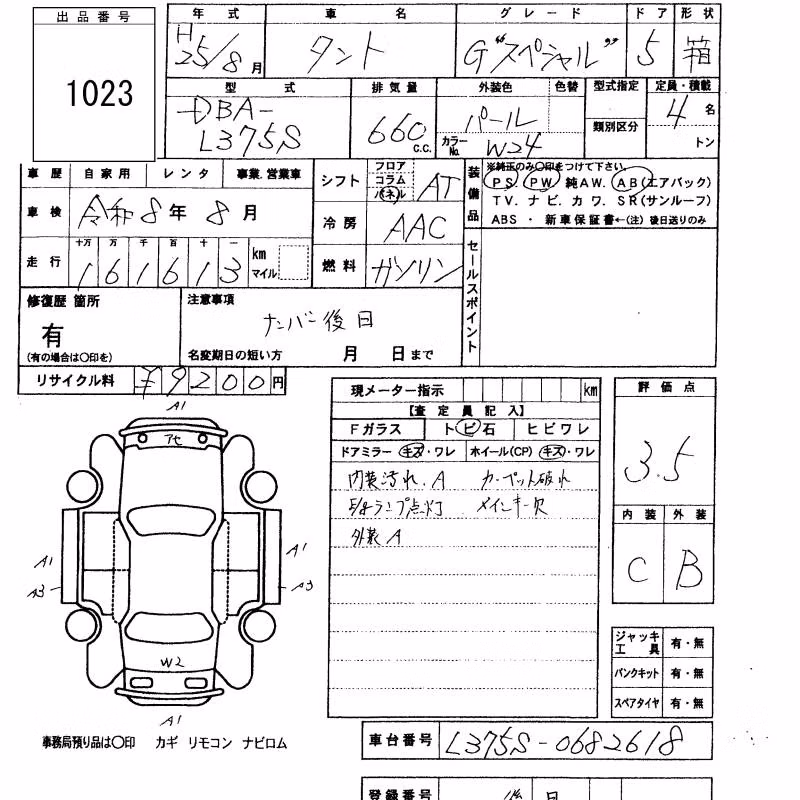 出品番号
1023
年式 車名 グレード ドア 形状
H25/8月 タント G"スペシャル" 5 箱
型式 排気量 外装色 色替 型式指定 定員・積載
DBA-L375S 660 C.C. パール 4名
カラーNo. W24 類別区分 トン
車歴 自家用 レンタ 事業.営業車
車検 令和8年8月
走行 十万 万 千 百 十 一
161613 km マイル
シフト フロア コラム パネル AT
冷房 AAC
燃料 ガソリン
装備品
※純正のみ〇印をつけて下さい
PS. PW. 純AW. AB(エアバック)
TV. ナビ. カワ. SR(サンルーフ)
ABS ・ 新車保証書←(注) 後日送りのみ
セールスポイント
修復歴 箇所
有
(有の場合は〇印を)
注意事項
ナンバー後日
名変期日の短い方 月 日まで
リサイクル料 ¥9200円
現メーター指示 km
【査定員記入】
Fガラス トビ石 ヒビワレ
ドアミラー キズ・ワレ ホイール(CP) キズ・ワレ
内装汚れ.A カーペット破れ
ランプ点灯 メインキー欠
外装A
評価点
3.5
内装 外装
C B
ジャッキ工具 有・無
パンクキット 有・無
スペアタイヤ 有・無
A1
アセ
A1
A3
A1
A3
W2
A1
事務局預り品は〇印 カギ リモコン ナビロム
車台番号 L375S-0682618
登録番号 後日